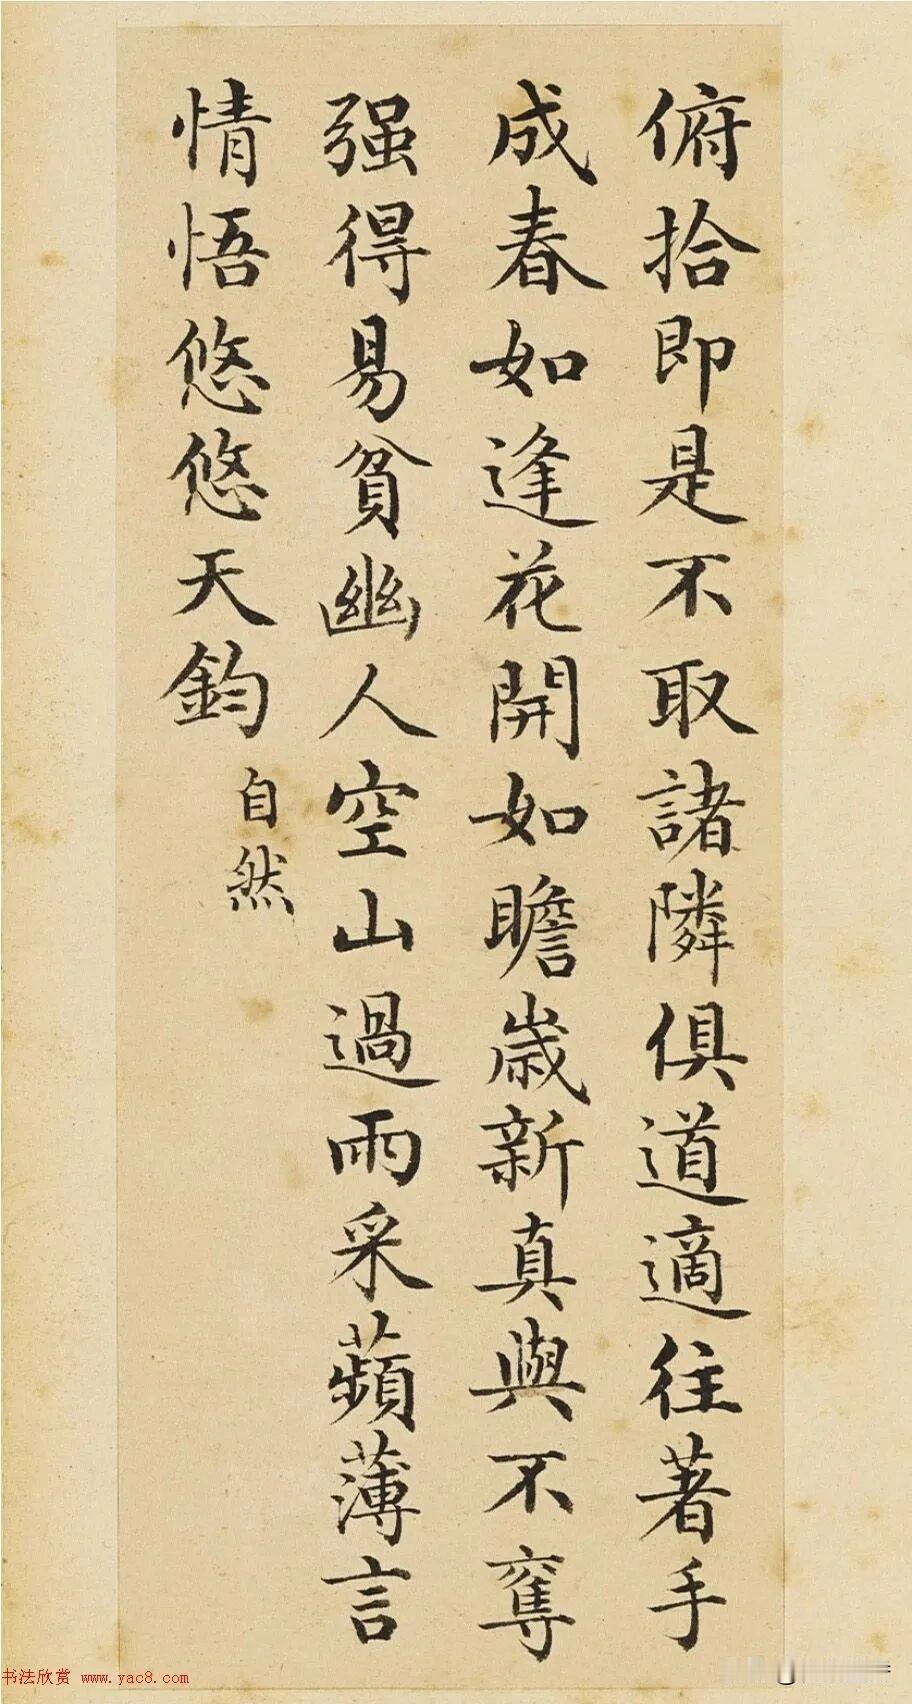 俯拾即是不取諸隣俱道適往著手
成春如逢花開如瞻歳新真與不奪
强得易貧幽人空山過雨采蘋薄言
情悟悠悠天鈞
自然
书法欣赏 www.yac8.com